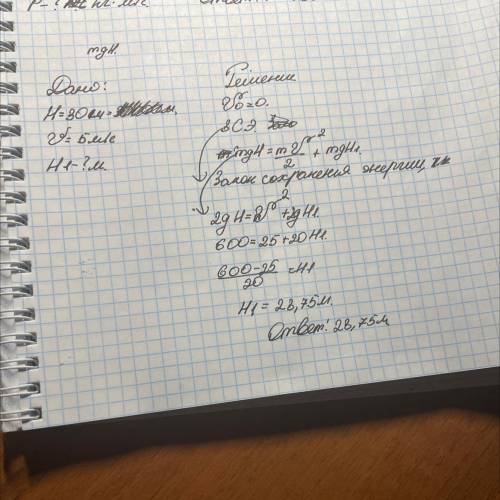 mgH.
Дано:
H=30см=
V=5м/с
H1-?м.
Решение
V0=0.
ЗСЭ.
mgH=mV²/2+mgH1.
Закон сохранения энергии,
2gH=V²+2gH1.
600=25+20H1.
600-25/20=H1
H1=28,75м.
Ответ: 28,75м